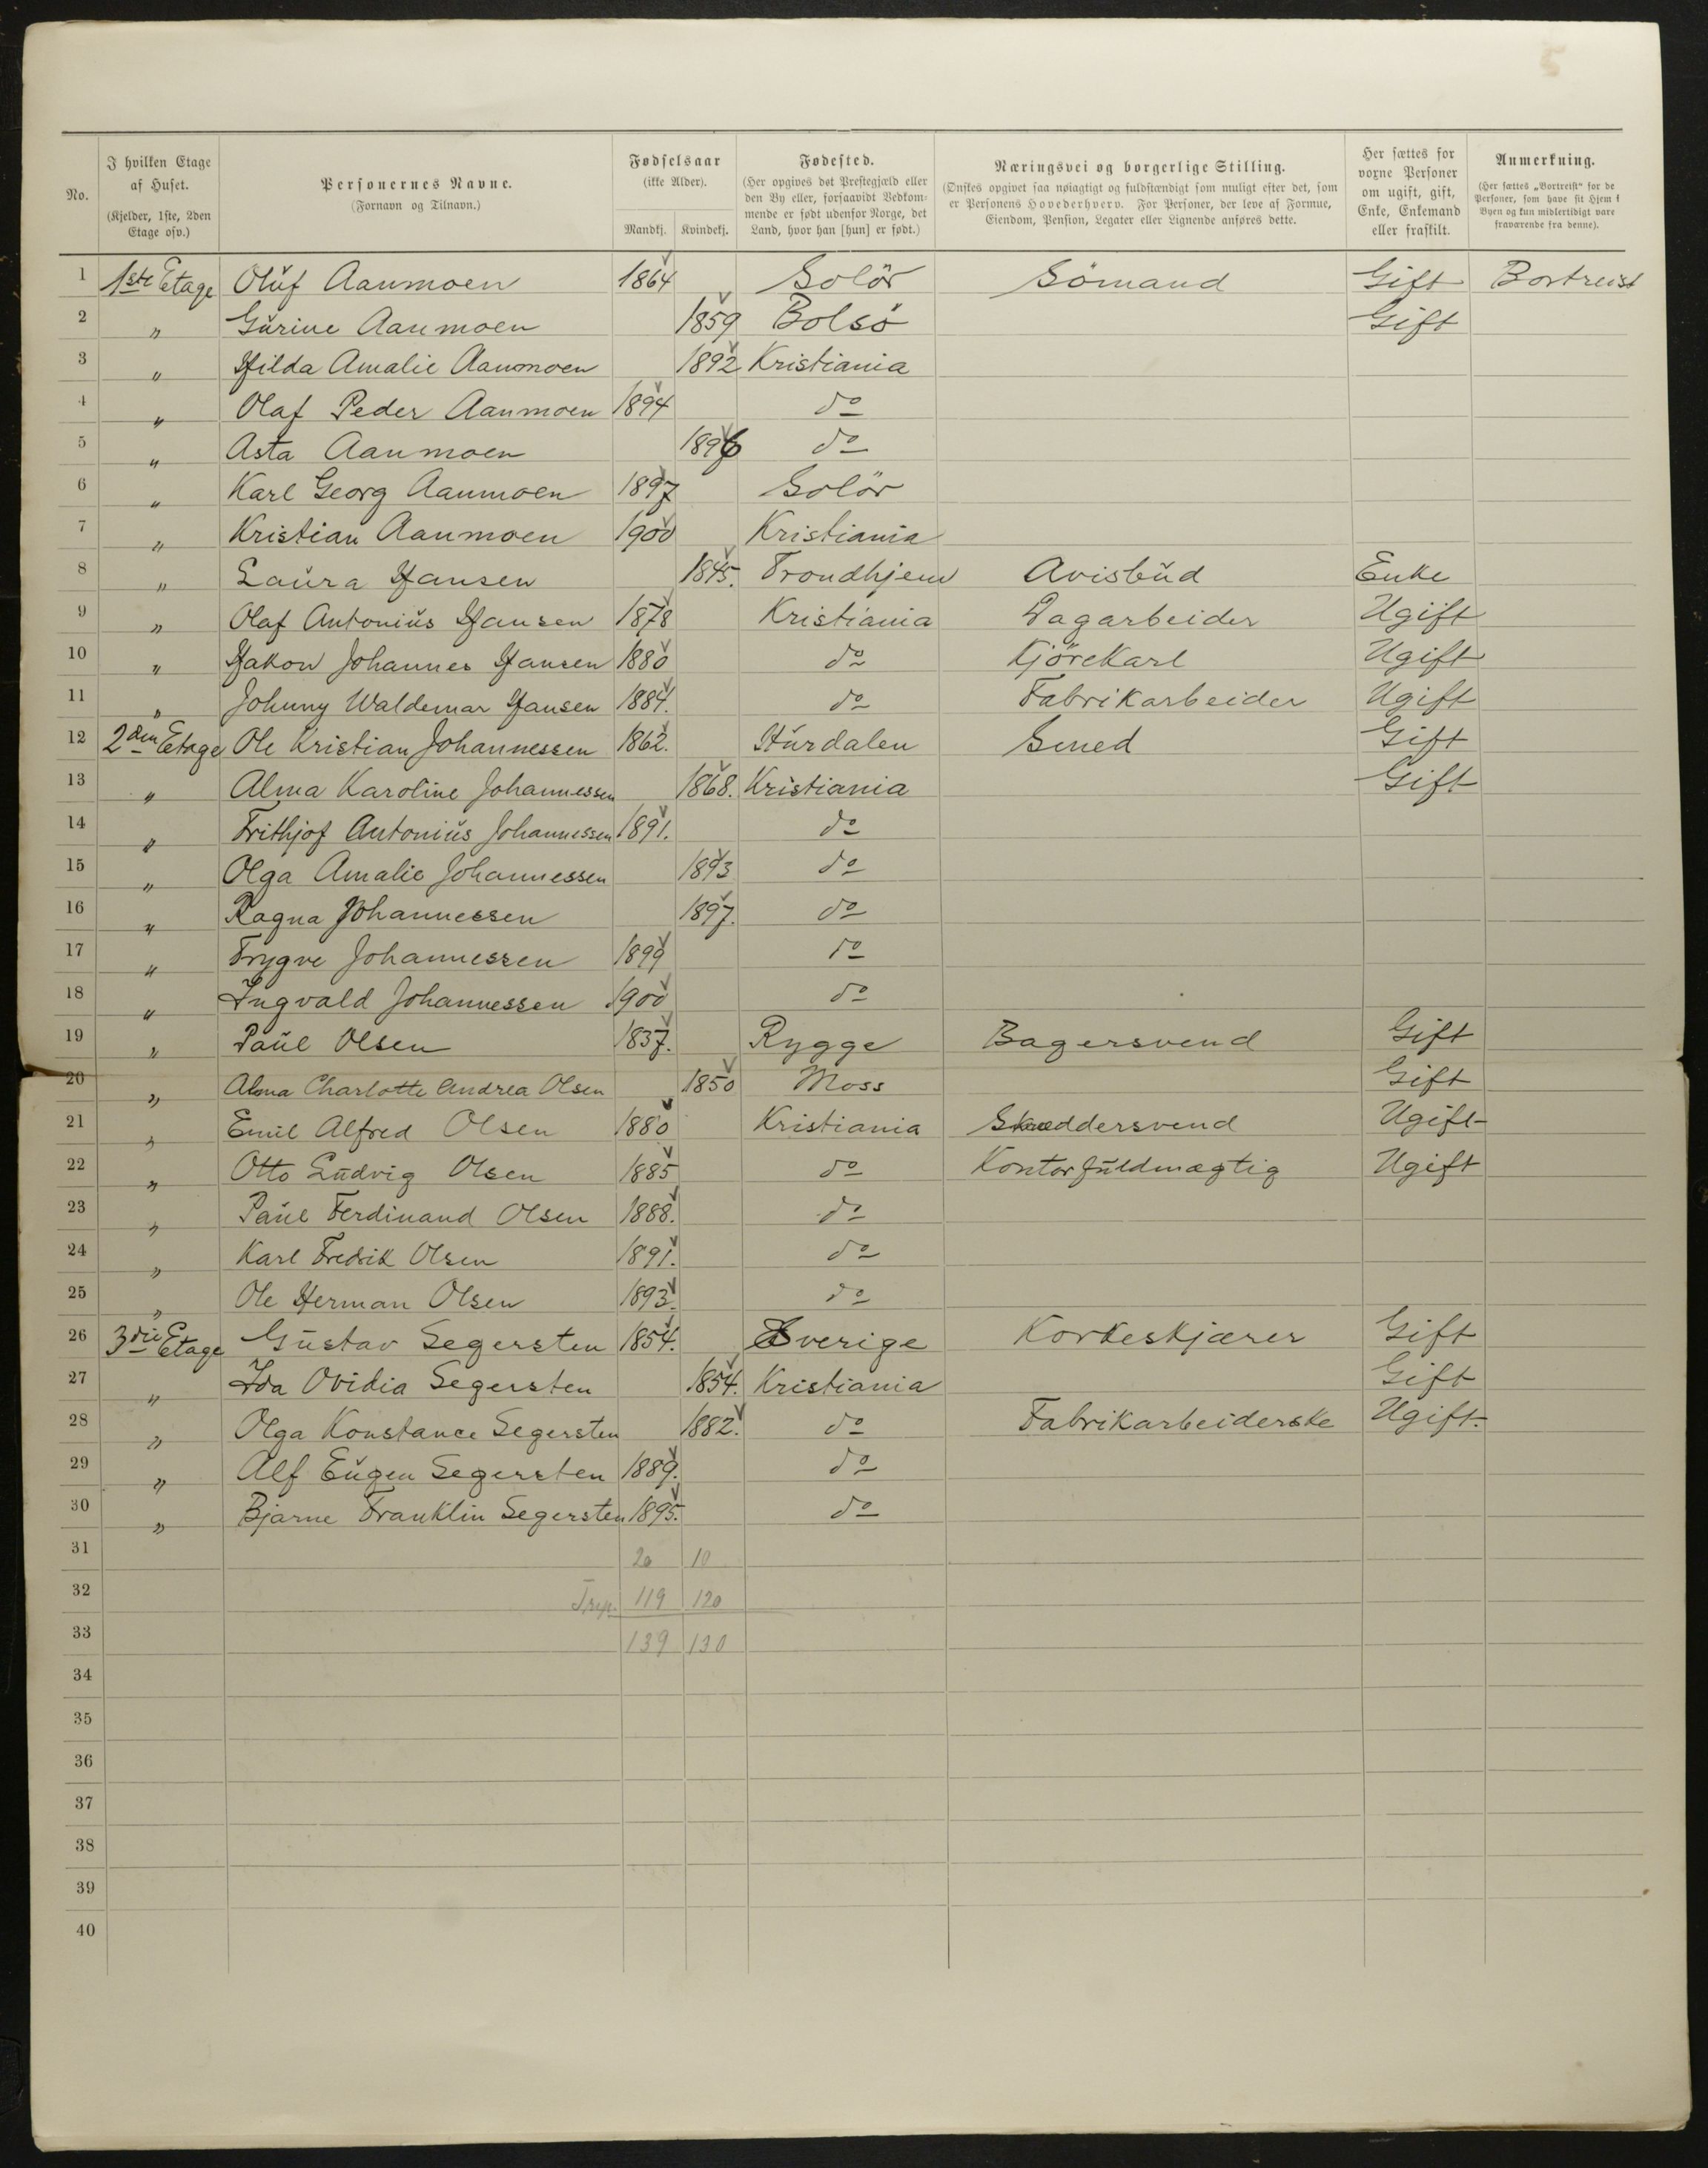 5
No.
I hvilken Etage af Huset.
(Kjelder, 1ste, 2den Etage osv.)
Personernes Navne.
(Fornavn og Tilnavn.)
Fødselsaar
(ikke Alder).
Mandkj. Kvindekj.
Fødested.
(Her opgives det Prestegjæld eller den By eller, forsaavidt Vedkommende er født udenfor Norge, det Land, hvor han [hun] er født.)
Næringsvei og borgerlige Stilling.
(Ønskes opgivet saa nøiagtigt og fuldstændigt som muligt efter det, som er Personens Hovederhverv. For Personer, der leve af Formue, Eiendom, Pension, Legater eller Lignende anføres dette.
Her sættes for voxne Personer om ugift, gift, Enke, Enkemand eller fraskilt.
Anmerkning.
(Her sættes „Bortreist“ for de Personer, som have sit Hjem i Byen og kun midlertidigt vare fraværende fra denne).
1 1ste Etage Oluf Aanmoen 1864 Solör Sömand Gift Bortreist
2 " Gurine Aanmoen 1859 Bolsö Gift
3 " Hilda Amalie Aanmoen 1892 Kristiania
4 " Olaf Peder Aanmoen 1894 do
5 " Asta Aanmoen 1896 do
6 " Karl Georg Aanmoen 1897 Solör
7 " Kristian Aanmoen 1900 Kristiania
8 " Laura Hansen 1845. Trondhjem Avisbud Enke
9 " Olaf Antonius Hansen 1878 Kristiania Dagarbeider Ugift
10 " Hakon Johannes Hansen 1880 do Kjörekarl Ugift
11 " Johnny Waldemar Hansen 1884. do Fabrikarbeider Ugift
12 2den Etage Ole Kristian Johannessen 1862. Hurdalen Smed Gift
13 " Alma Karoline Johannessen 1868. Kristiania Gift
14 " Frithjof Antonius Johannessen 1891. do
15 " Olga Amalie Johannessen 1893 do
16 " Ragna Johannessen 1897. do
17 " Trygve Johannessen 1899 do
18 " Ingvald Johannessen 1900 do
19 " Paul Olsen 1837. Rygge Bagersvend Gift
20 " Alma Charlotte Andrea Olsen 1850 Moss Gift
21 " Emil Alfred Olsen 1880 Kristiania Skræddersvend Ugift
22 " Otto Ludvig Olsen 1885 do Kontorfuldmægtig Ugift
23 " Paul Ferdinand Olsen 1888. do
24 " Karl Fredrik Olsen 1891. do
25 " Ole Herman Olsen 1893. do
26 3die Etage Gustav Segersten 1854. Sverige Korkeskjærer Gift
27 " Ida Ovidia Segersten 1854. Kristiania Gift
28 " Olga Konstance Segersten 1882. do Fabrikarbeiderske Ugift.
29 " Alf Eugen Segersten 1889. do
30 " Bjarne Franklin Segersten 1895. do
31 20 10
32 119 120
33 139 130
34
35
36
37
38
39
40